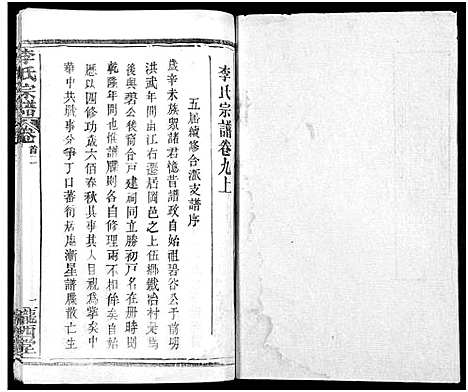 李氏宗譜卷九上
五屆續修合派支譜序
歲辛未族眾諸君憶昔譜政自始祖碧谷公于前明
洪武年間由江右遷居岡邑之上伍鄉鐵冶村
後與碧公後裔合戶建祠同立勝初戶名在冊時則
乾隆年間也僱譜牒則各自修理兩不相侔矣自始
歷以四修功成六佰春秋其事其人目視為摯矣中
華中共戰事分爭丁口蕃衍居處漸星譜牒散亡生
李氏宗譜 卷 首二
一 隴西堂